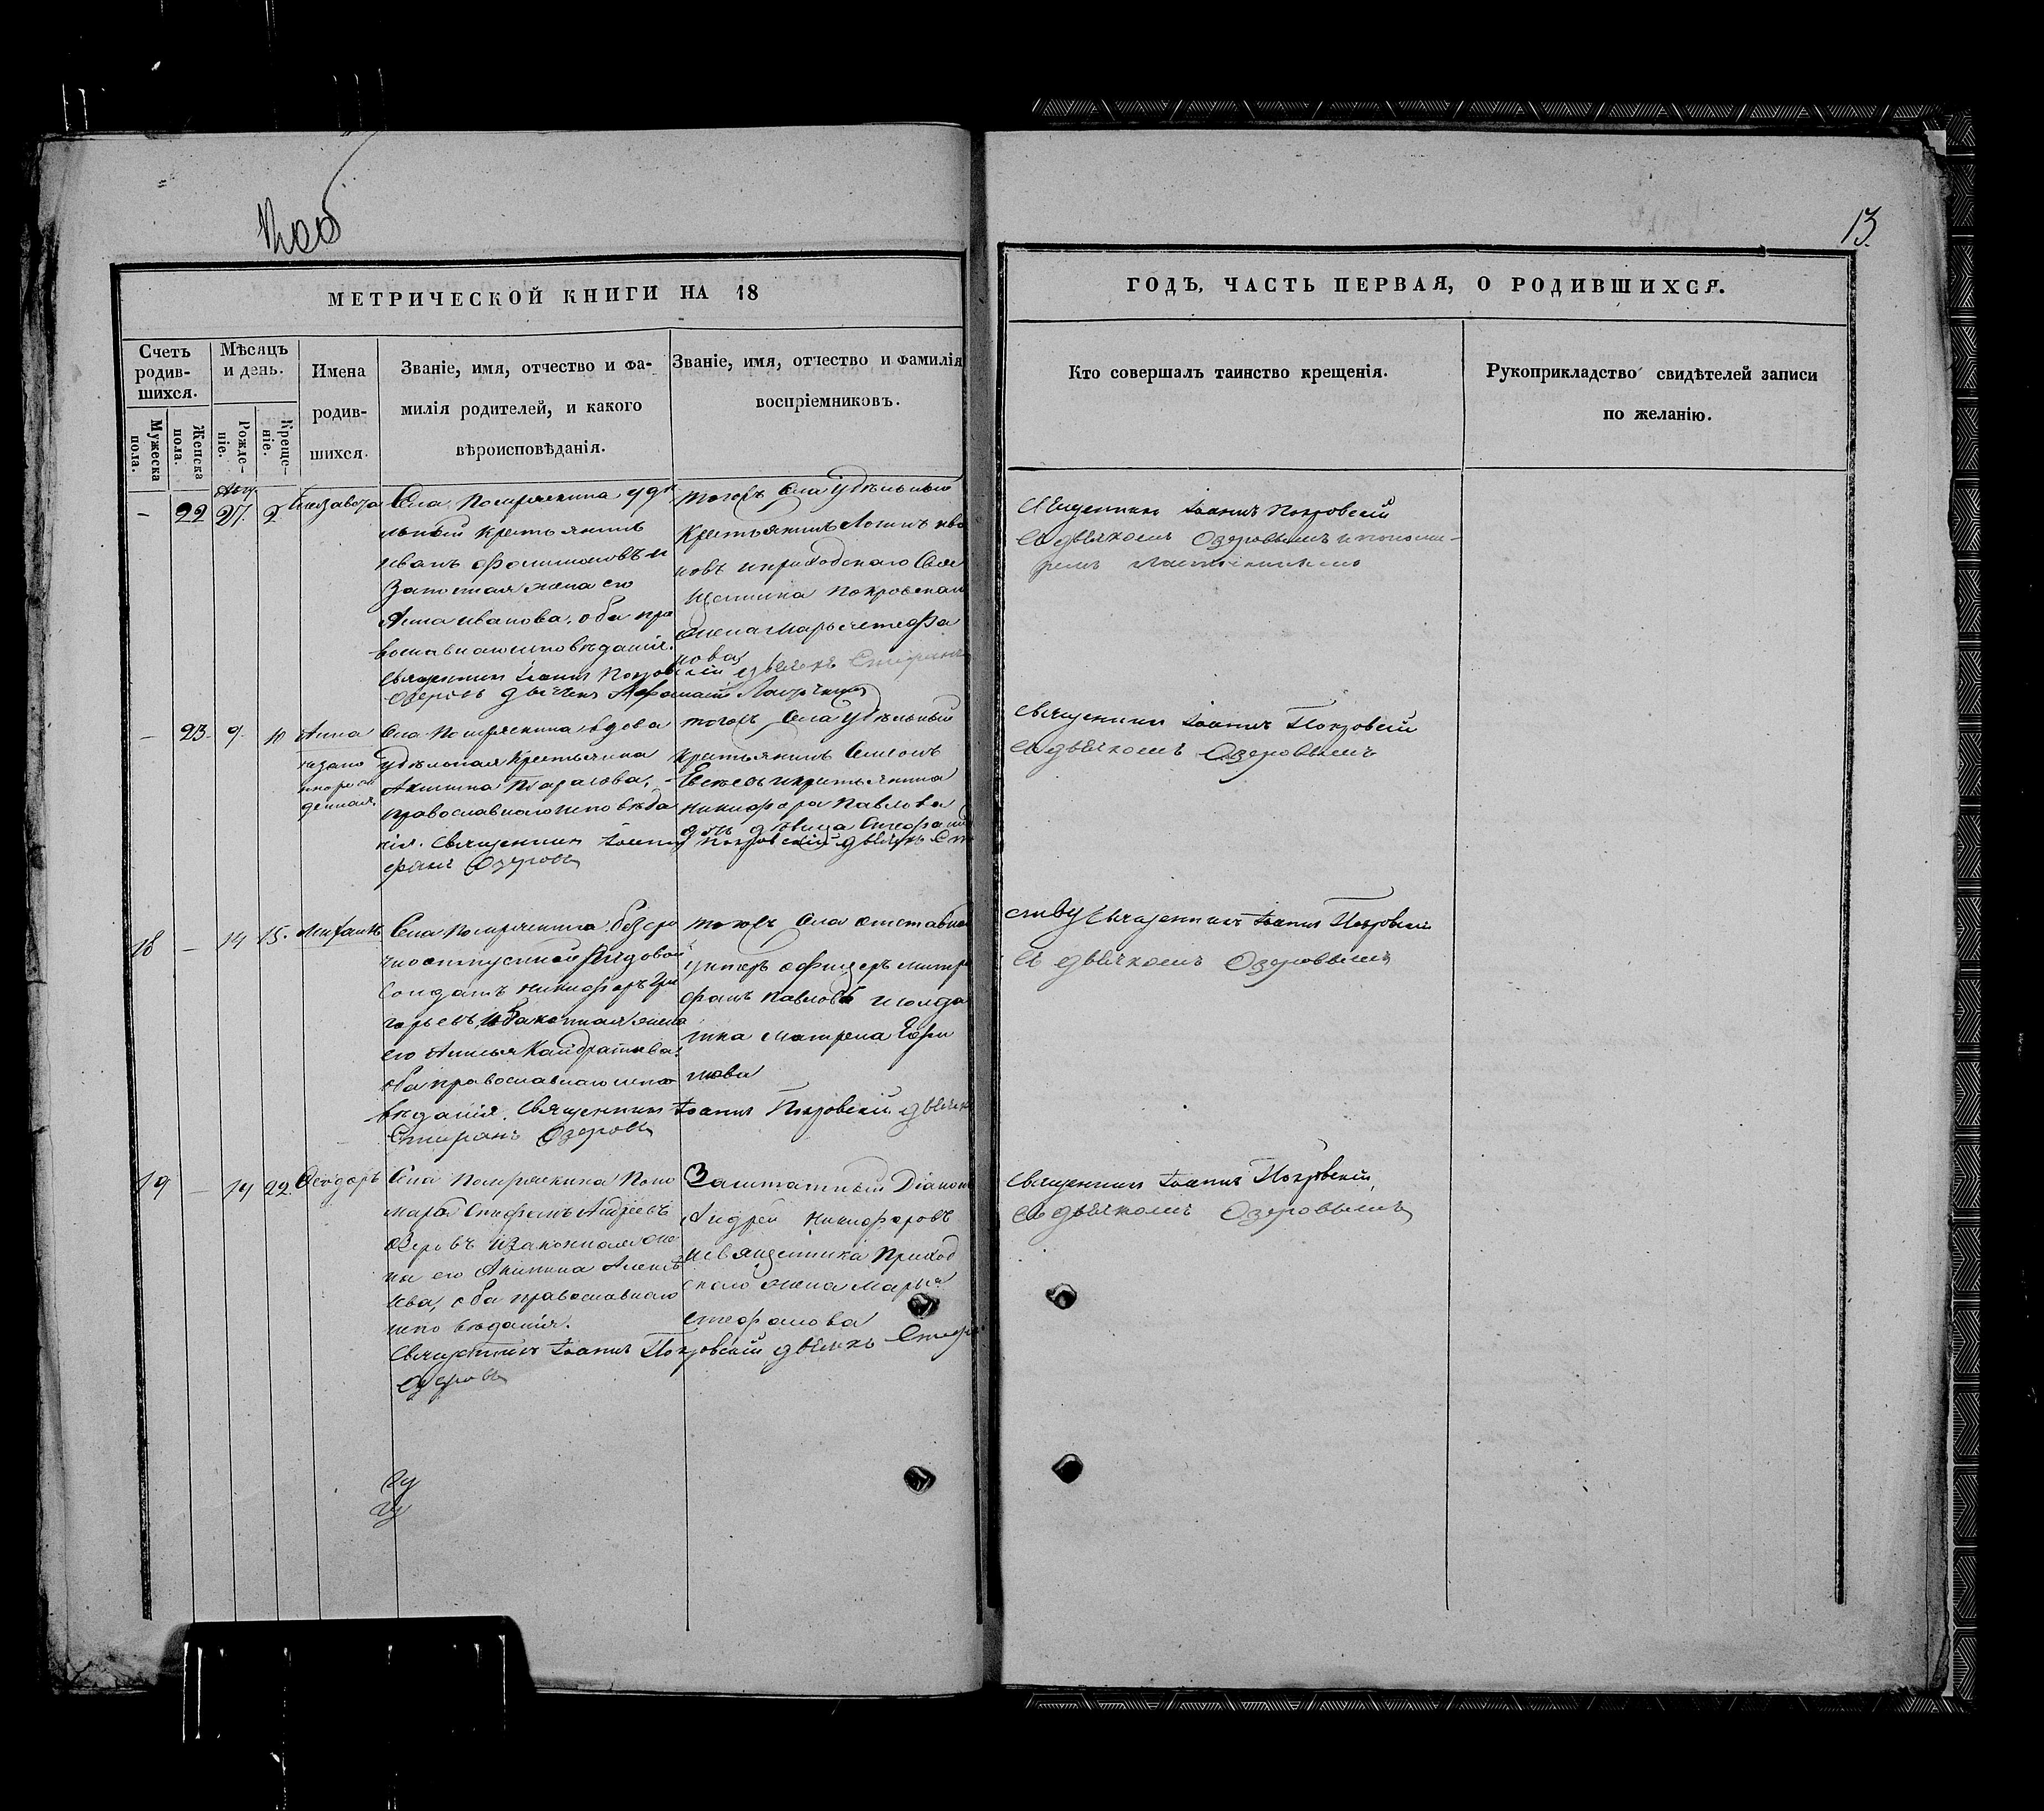 13.
МЕТРИЧЕСКОЙ КНИГИ НА 18
ГОДЪ, ЧАСТЬ ПЕРВАЯ, О РОДИВШИХСЯ.
Счетъ родив-шихся.
Мужеска пола.
Женска пола.
Мѣсяцъ и день.
Рожде-ніе.
Креще-ніе.
Имена
родив-
шихся.
Званіе, имя, отчество и фа-
милія родителей, и какого
вѣроисповѣданія.
Званіе, имя, отчество и фамилія
воспріемниковъ.
Кто совершалъ таинство крещенія.
Рукоприкладство свидѣтелей записи
по желанію.
— 22 27. 2 Елизавета
Села Помряскина удѣ
льный крестьянинъ
Иванъ и
законная жена его
Анна Иванова, оба пра
вославнаго исповѣданія.
Священникъ Іоаннъ Покровскій дьячекъ Стефанъ
Озеровъ
тогожъ села удѣльный
крестьянинъ Ива
новъ и приходскаго Свя
щенника Покровскаго
жена Марья Стефа
нова
Священникъ Іоаннъ Покровскій
со дьячкомъ Озеровымъ и понома-
ремъ
— 23. 9. 10 Анна
незако
ннорож
денная
Села Помряскина вдова
удѣльная крестьянка
Акилина Тарасова,
православнаго исповѣда
нія. Священникъ Іоаннъ Покровскій дьячекъ Сте
фанъ Озеровъ
тогожъ села удѣльный
крестьянинъ Симеонъ
и крестьянина
Никифора Павлова
дочь дѣвица
Священникъ Іоаннъ Покровскій
со дьячкомъ Озеровымъ
18 — 14 15. Михаилъ
Села Помряскина безсро
чноотпускной рядовой
Солдатъ Никифоръ Гри
горьевъ и законная жена
его Анисья Кондратьева
оба православнаго испо
вѣданія. Священникъ Іоаннъ Покровскій дьячекъ
Стефанъ Озеровъ
тогожъ села отставной
унтеръ офицеръ Митро
фанъ Павловъ и солда
тка Матрена
Священникъ Іоаннъ Покровскій
съ дьячкомъ Озеровымъ
19 — 19 22. Феодоръ
Села Помряскина Поно
марь Стефанъ Андреевъ
Озеровъ и законная же
на его Акилина Алексѣ
ева, оба православнаго
исповѣданія.
Священникъ Іоаннъ Покровскій дьячекъ Стефанъ
Озеровъ
Заштатный Діаконъ
Андрей Никифоровъ
и священника приход
скаго жена Марья
Стефанова
Священникъ Іоаннъ Покровскій,
со дьячкомъ Озеровымъ